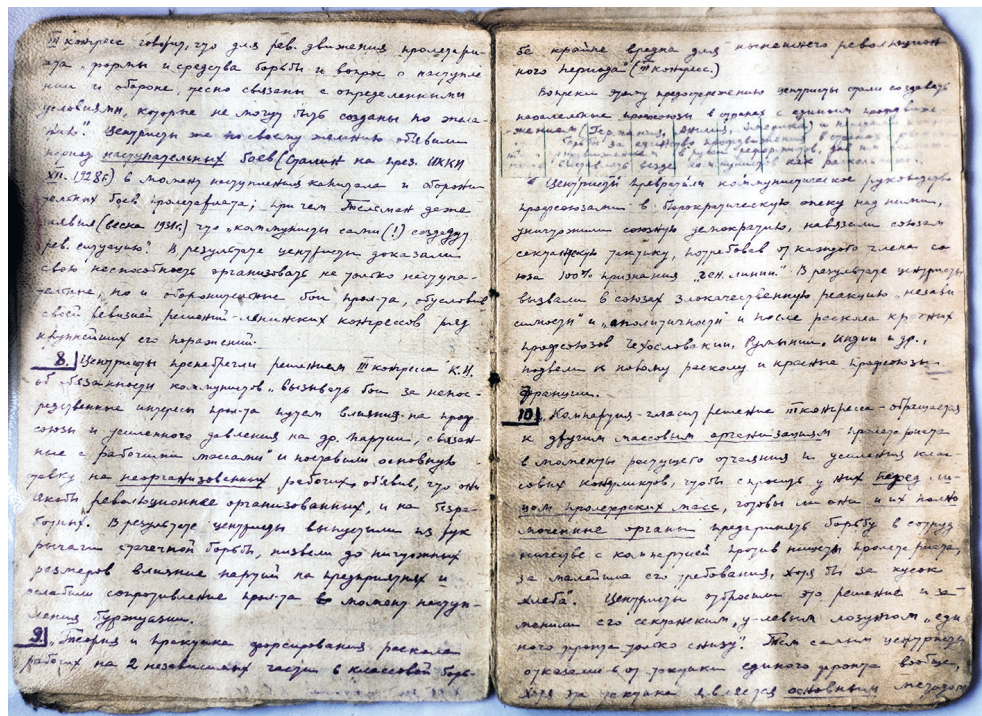 III конгресс говорил, что для рев. движения пролетари-
ата „формы и средства борьбы и вопрос о наступле
нии и обороне, тесно связаны с определенными
условиями, которые не могут быть созданы по жела-
нию". Центристы же по своему желанию объявили
период наступательных боев (Сталин на през. ИККИ
XII. 1928г.) в момент наступления капитала и оборони-
тельных боев пролетариата; при чем Тельман даже
заявил (весна 1931г.) что „коммунисты сами (!) создадут
рев. ситуацию". В результате центристы доказали
свою неспособность организовать не только наступа-
тельные, но и оборонительные бои прол-та, обусловив
своей ревизией решений ленинских конгрессов ряд
крупнейших его поражений.
8. Центристы пренебрегли решением III конгресса К.И.
об обязанности коммунистов „вызывать бои за непос-
редственные интересы прол-та путем влияния на проф
союзы и усиленного давления на др. партии, связан-
ные с рабочими массами" и поставили основную
ставку на неорганизованных рабочих, объявив, что они
якобы революционнее организованных, и на безра-
ботных. В результате центристы выпустили из рук
рычаги стачечной борьбы, низвели до ничтожных
размеров влияние партий на предприятиях и
ослабили сопротивление прол-та в момент наступ-
ления буржуазии.
9. „Теория и практика форсирования раскола
рабочих на 2 независимых части в классовой борь-
бе крайне вредна для нынешнего революцион
ного периода" (III конгресс.)
Вопреки этому предостережению центристы стали создавать
параллельные профсоюзы в странах с единым профдвиже-
жением (Германия, Англия, Америка)
борьбы за единство профдвижения в странах
как
Центристы превратили коммунистическое руководство
профсоюзами в бюрократическую опеку над ними,
уничтожили союзную демократию, навязали союзам
сектантскую тактику, потребовав от каждого члена со
юза 100% признания „ген. линии". В результате центристы
вызвали в союзах злокачественную реакцию „незави
симости" и „аполитичности" и после раскола красных
профсоюзов Чехословакии, Румынии, Индии и др.,
подвели к новому расколу и красные профсоюзы
Франции.
10. „Компартия - гласит решение III конгресса - обращается
к другим массовым организациям пролетариата
в моменты растущего отчаяния и усиления клас-
совых конфликтов, чтобы спросить у них перед ли-
цом пролетарских масс, готовы ли они и их полно
моченные органы предпринять борьбу в сотруд
ничестве с компартией против нищеты пролетариата,
за малейшие его требования, хотя бы за кусок
хлеба". Центристы отбросили это решение и за-
менили его сектанским, у-левым лозунгом „еди
ного фронта только снизу". Тем самым центристы
отказались от тактики единого фронта вообще,
хотя эта тактика является основным методом